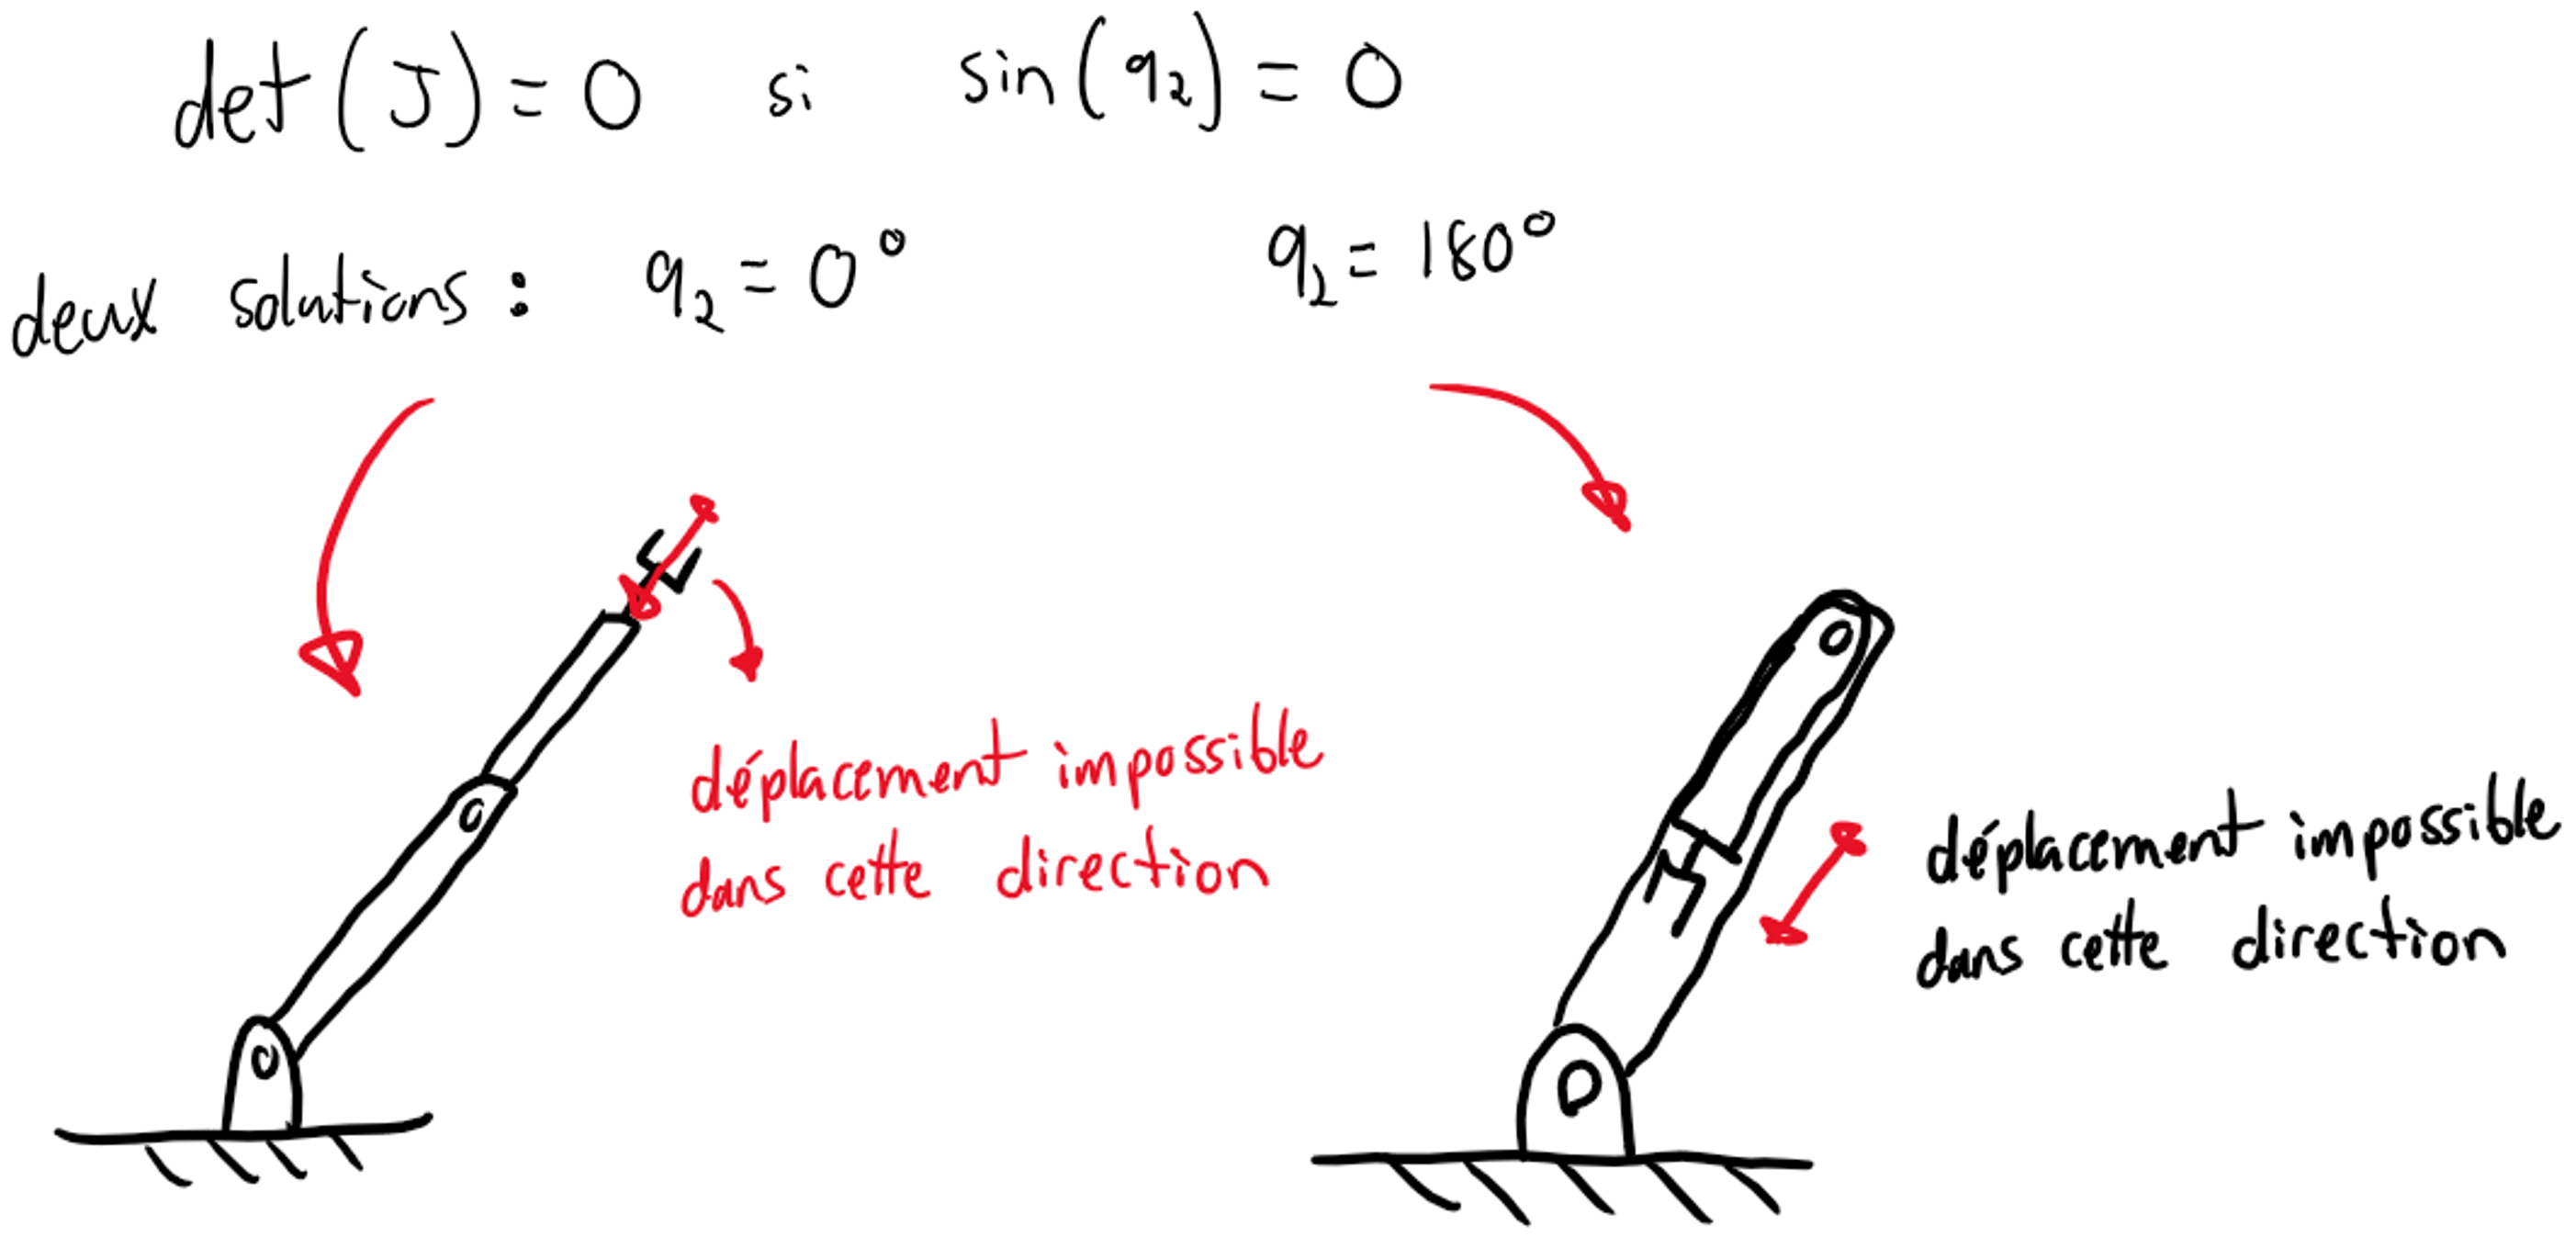 det(J) = 0 si sin(q₂) = 0
deux solutions : q₂ = 0° q₂ = 180°
déplacement impossible
dans cette direction
déplacement impossible
dans cette direction